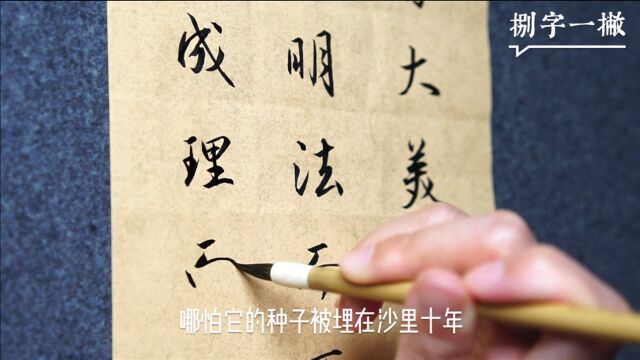 捌字一撇
大美
明法
成理
哪怕它的种子被埋在沙里十年